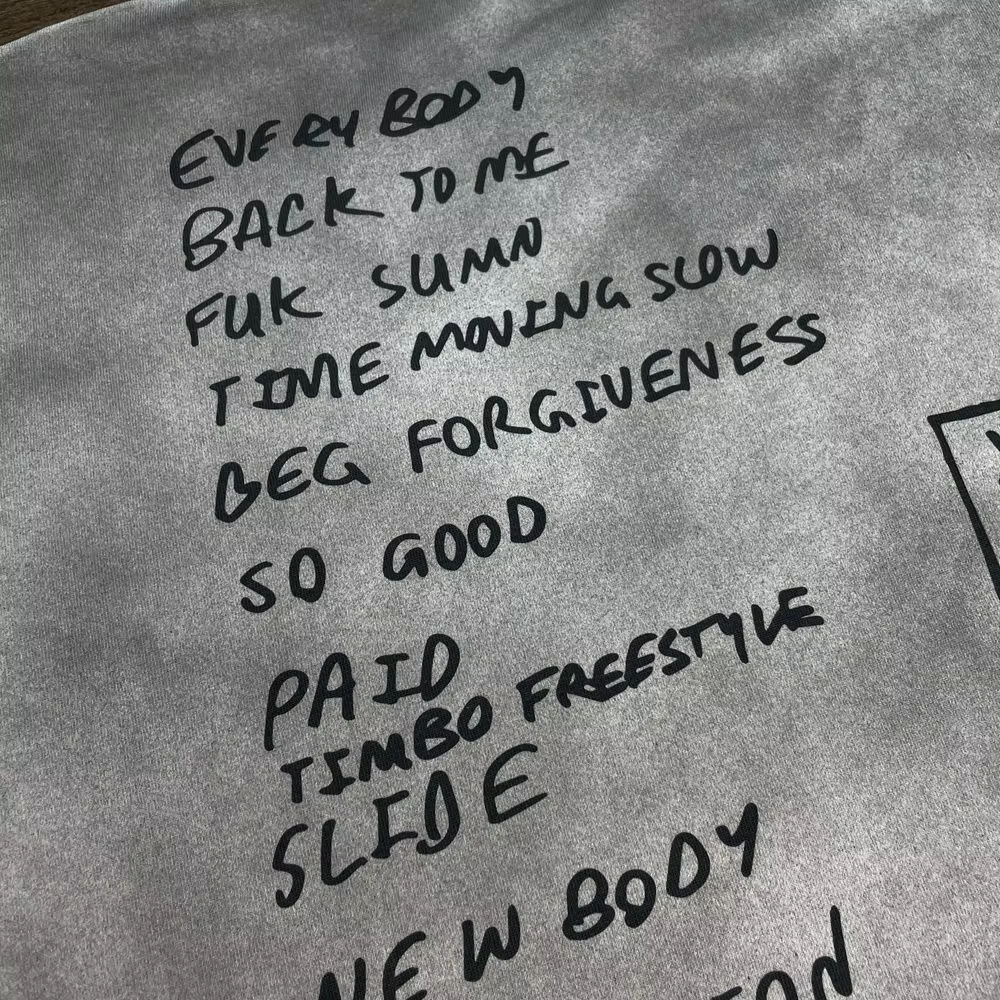 EVERYBODY
BACK TO ME
FUK SUMN
TIME MOVING SLOW
BEG FORGIVENESS
SO GOOD
PAID
TIMBO FREESTYLE
SLIDE
NEW BODY